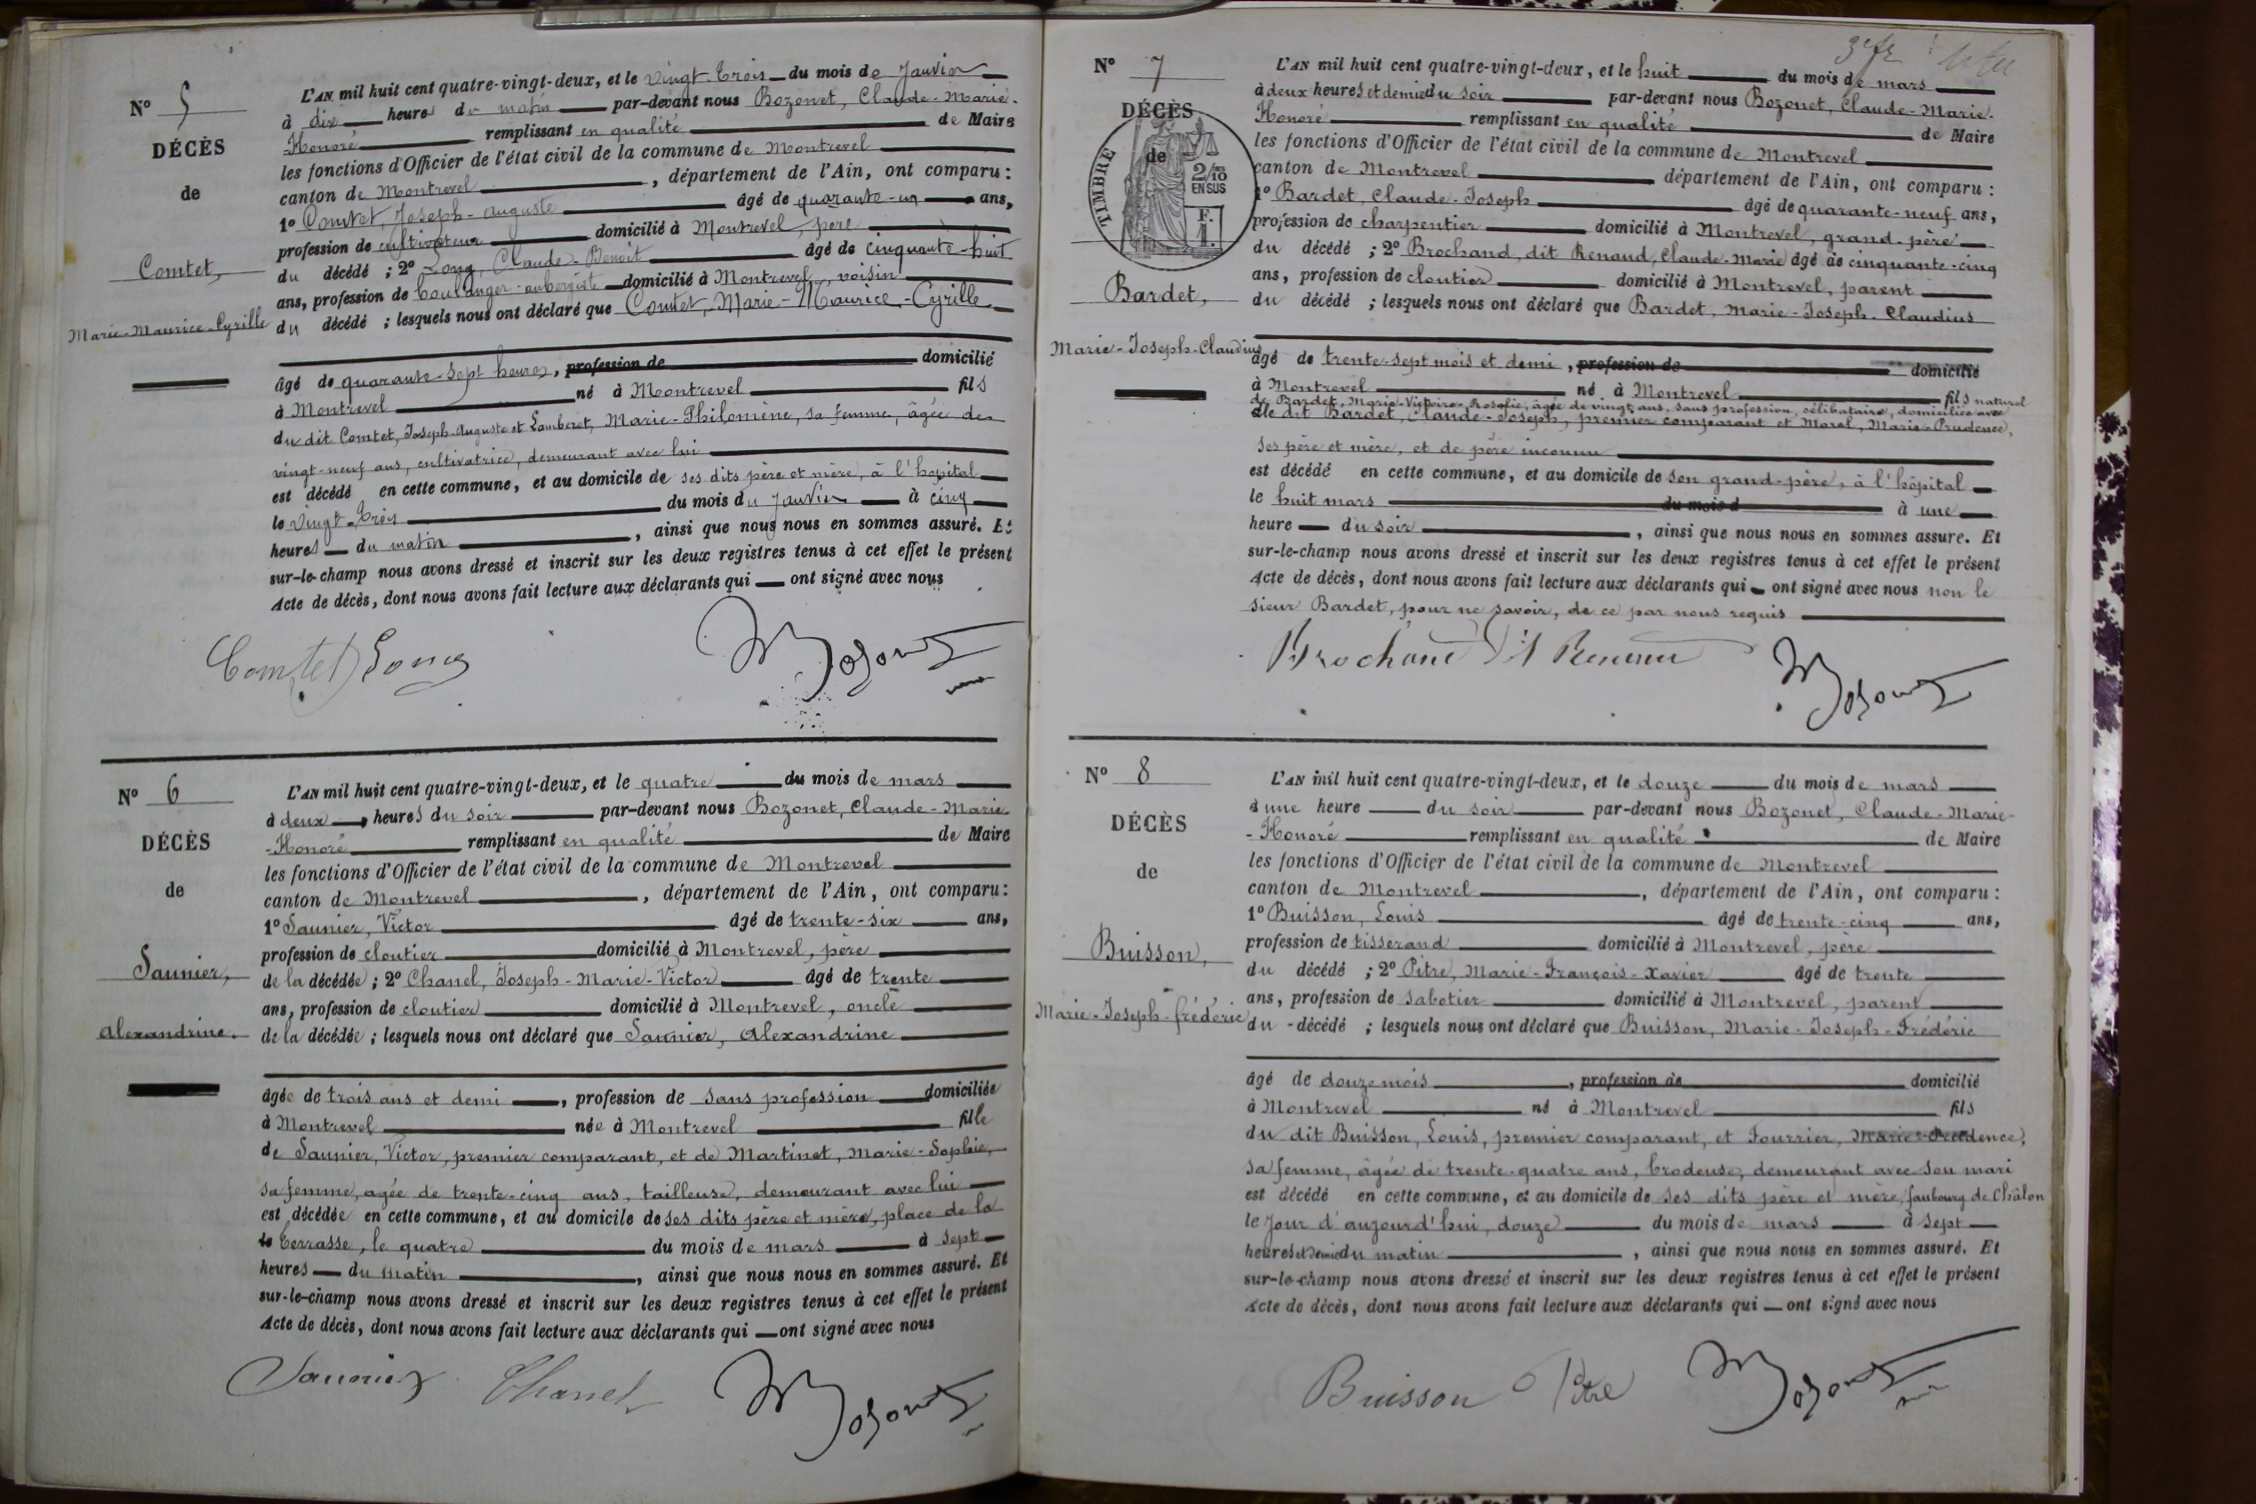 N° 5
DÉCÈS
de
Comtet,
Marie-Maurice-Cyrille
L'AN mil huit cent quatre-vingt-deux, et le vingt-trois du mois de Janvier
à dix heures du matin par-devant nous Bozonet, Claude-Marie-
-Honoré remplissant en qualité de Maire
les fonctions d'Officier de l'état civil de la commune de Montrevel
canton de Montrevel, département de l'Ain, ont comparu :
1° Comtet, Joseph-Auguste âgé de quarante-un ans,
profession de cultivateur domicilié à Montrevel, père
du décédé ; 2° Long, Claude-Benoit âgé de cinquante-huit
ans, profession de boulanger-aubergiste domicilié à Montrevel, voisin
du décédé ; lesquels nous ont déclaré que Comtet, Marie-Maurice-Cyrille
âgé de quarante-sept heures, profession de domicilié
à Montrevel né à Montrevel fils
du dit Comtet, Joseph-Auguste et Lamberet, Marie-Philomène, sa femme, âgée de
vingt-neuf ans, cultivatrice, demeurant avec lui
est décédé en cette commune, et au domicile de ses dits père et mère, à l'hôpital
le vingt-trois du mois du Janvier à cinq
heures du matin, ainsi que nous nous en sommes assuré. Et
sur-le-champ nous avons dressé et inscrit sur les deux registres tenus à cet effet le présent
Acte de décès, dont nous avons fait lecture aux déclarants qui ont signé avec nous
Comtet Long Bozonet
N° 6
DÉCÈS
de
Saunier,
Alexandrine.
L'AN mil huit cent quatre-vingt-deux, et le quatre du mois de mars
à deux heures du soir par-devant nous Bozonet, Claude-Marie-
-Honoré remplissant en qualité de Maire
les fonctions d'Officier de l'état civil de la commune de Montrevel
canton de Montrevel, département de l'Ain, ont comparu :
1° Saunier, Victor âgé de trente-six ans,
profession de cloutier domicilié à Montrevel, père
de la décédée ; 2° Chanel, Joseph-Marie-Victor âgé de trente
ans, profession de cloutier domicilié à Montrevel, oncle
de la décédée ; lesquels nous ont déclaré que Saunier, Alexandrine
âgée de trois ans et demi, profession de sans profession domiciliée
à Montrevel née à Montrevel fille
de Saunier, Victor, premier comparant, et de Martinet, Marie-Sophie,
sa femme, agée de trente-cinq ans, tailleuse, demeurant avec lui
est décédée en cette commune, et au domicile de ses dits père et mère, place de la
le Terrasse, le quatre du mois de mars à sept
heures du matin, ainsi que nous nous en sommes assuré. Et
sur-le-champ nous avons dressé et inscrit sur les deux registres tenus à cet effet le présent
Acte de décès, dont nous avons fait lecture aux déclarants qui ont signé avec nous
Saunier Chanel Bozonet
N° 7
DÉCÈS
de
TIMBRE
2/10
EN SUS
F.
1.
Bardet,
Marie-Joseph-Claudius
L'AN mil huit cent quatre-vingt-deux, et le huit du mois de mars
à deux heures et demie du soir par-devant nous Bozonet, Claude-Marie-
Honoré remplissant en qualité de Maire
les fonctions d'Officier de l'état civil de la commune de Montrevel
canton de Montrevel département de l'Ain, ont comparu :
1° Bardet, Claude-Joseph âgé de quarante-neuf ans,
profession de charpentier domicilié à Montrevel, grand-père
du décédé ; 2° Brochand, dit Renaud, Claude-Marie âgé de cinquante-cinq
ans, profession de cloutier domicilié à Montrevel, parent
du décédé ; lesquels nous ont déclaré que Bardet, Marie-Joseph-Claudius
âgé de trente-sept mois et demi, profession de domicilié
à Montrevel né à Montrevel fils naturel
de Bardet, Marie-Victoire-Rosalie, âgée de vingt ans, sans profession, célibataire, domiciliée avec
le dit Bardet, Claude-Joseph, premier comparant et Morel, Marie-Prudence,
ses père et mère, et de père inconnu
est décédé en cette commune, et au domicile de son grand-père, à l'hôpital
le huit mars du mois d à une
heure du soir, ainsi que nous nous en sommes assuré. Et
sur-le-champ nous avons dressé et inscrit sur les deux registres tenus à cet effet le présent
Acte de décès, dont nous avons fait lecture aux déclarants qui ont signé avec nous non le
sieur Bardet, pour ne savoir, de ce par nous requis
Brochand dit Renaud Bozonet
N° 8
DÉCÈS
de
Buisson,
Marie-Joseph-frédéric
L'AN mil huit cent quatre-vingt-deux, et le douze du mois de mars
à une heure du soir par-devant nous Bozonet, Claude-Marie-
-Honoré remplissant en qualité de Maire
les fonctions d'Officier de l'état civil de la commune de Montrevel
canton de Montrevel, département de l'Ain, ont comparu :
1° Buisson, Louis âgé de trente-cinq ans,
profession de tisserand domicilié à Montrevel, père
du décédé ; 2° Pitre, Marie-François-Xavier âgé de trente
ans, profession de sabotier domicilié à Montrevel, parent
du décédé ; lesquels nous ont déclaré que Buisson, Marie-Joseph-Frédéric
âgé de douze mois, profession de domicilié
à Montrevel né à Montrevel fils
du dit Buisson, Louis, premier comparant, et Fourrier, Marie-Prudence,
sa femme, âgée de trente-quatre ans, brodeuse, demeurant avec son mari
est décédé en cette commune, et au domicile de ses dits père et mère, faubourg de Châlon
le jour d'aujourd'hui, douze du mois de mars à sept
heures et demie du matin, ainsi que nous nous en sommes assuré. Et
sur-le-champ nous avons dressé et inscrit sur les deux registres tenus à cet effet le présent
Acte de décès, dont nous avons fait lecture aux déclarants qui ont signé avec nous
Buisson Pitre Bozonet